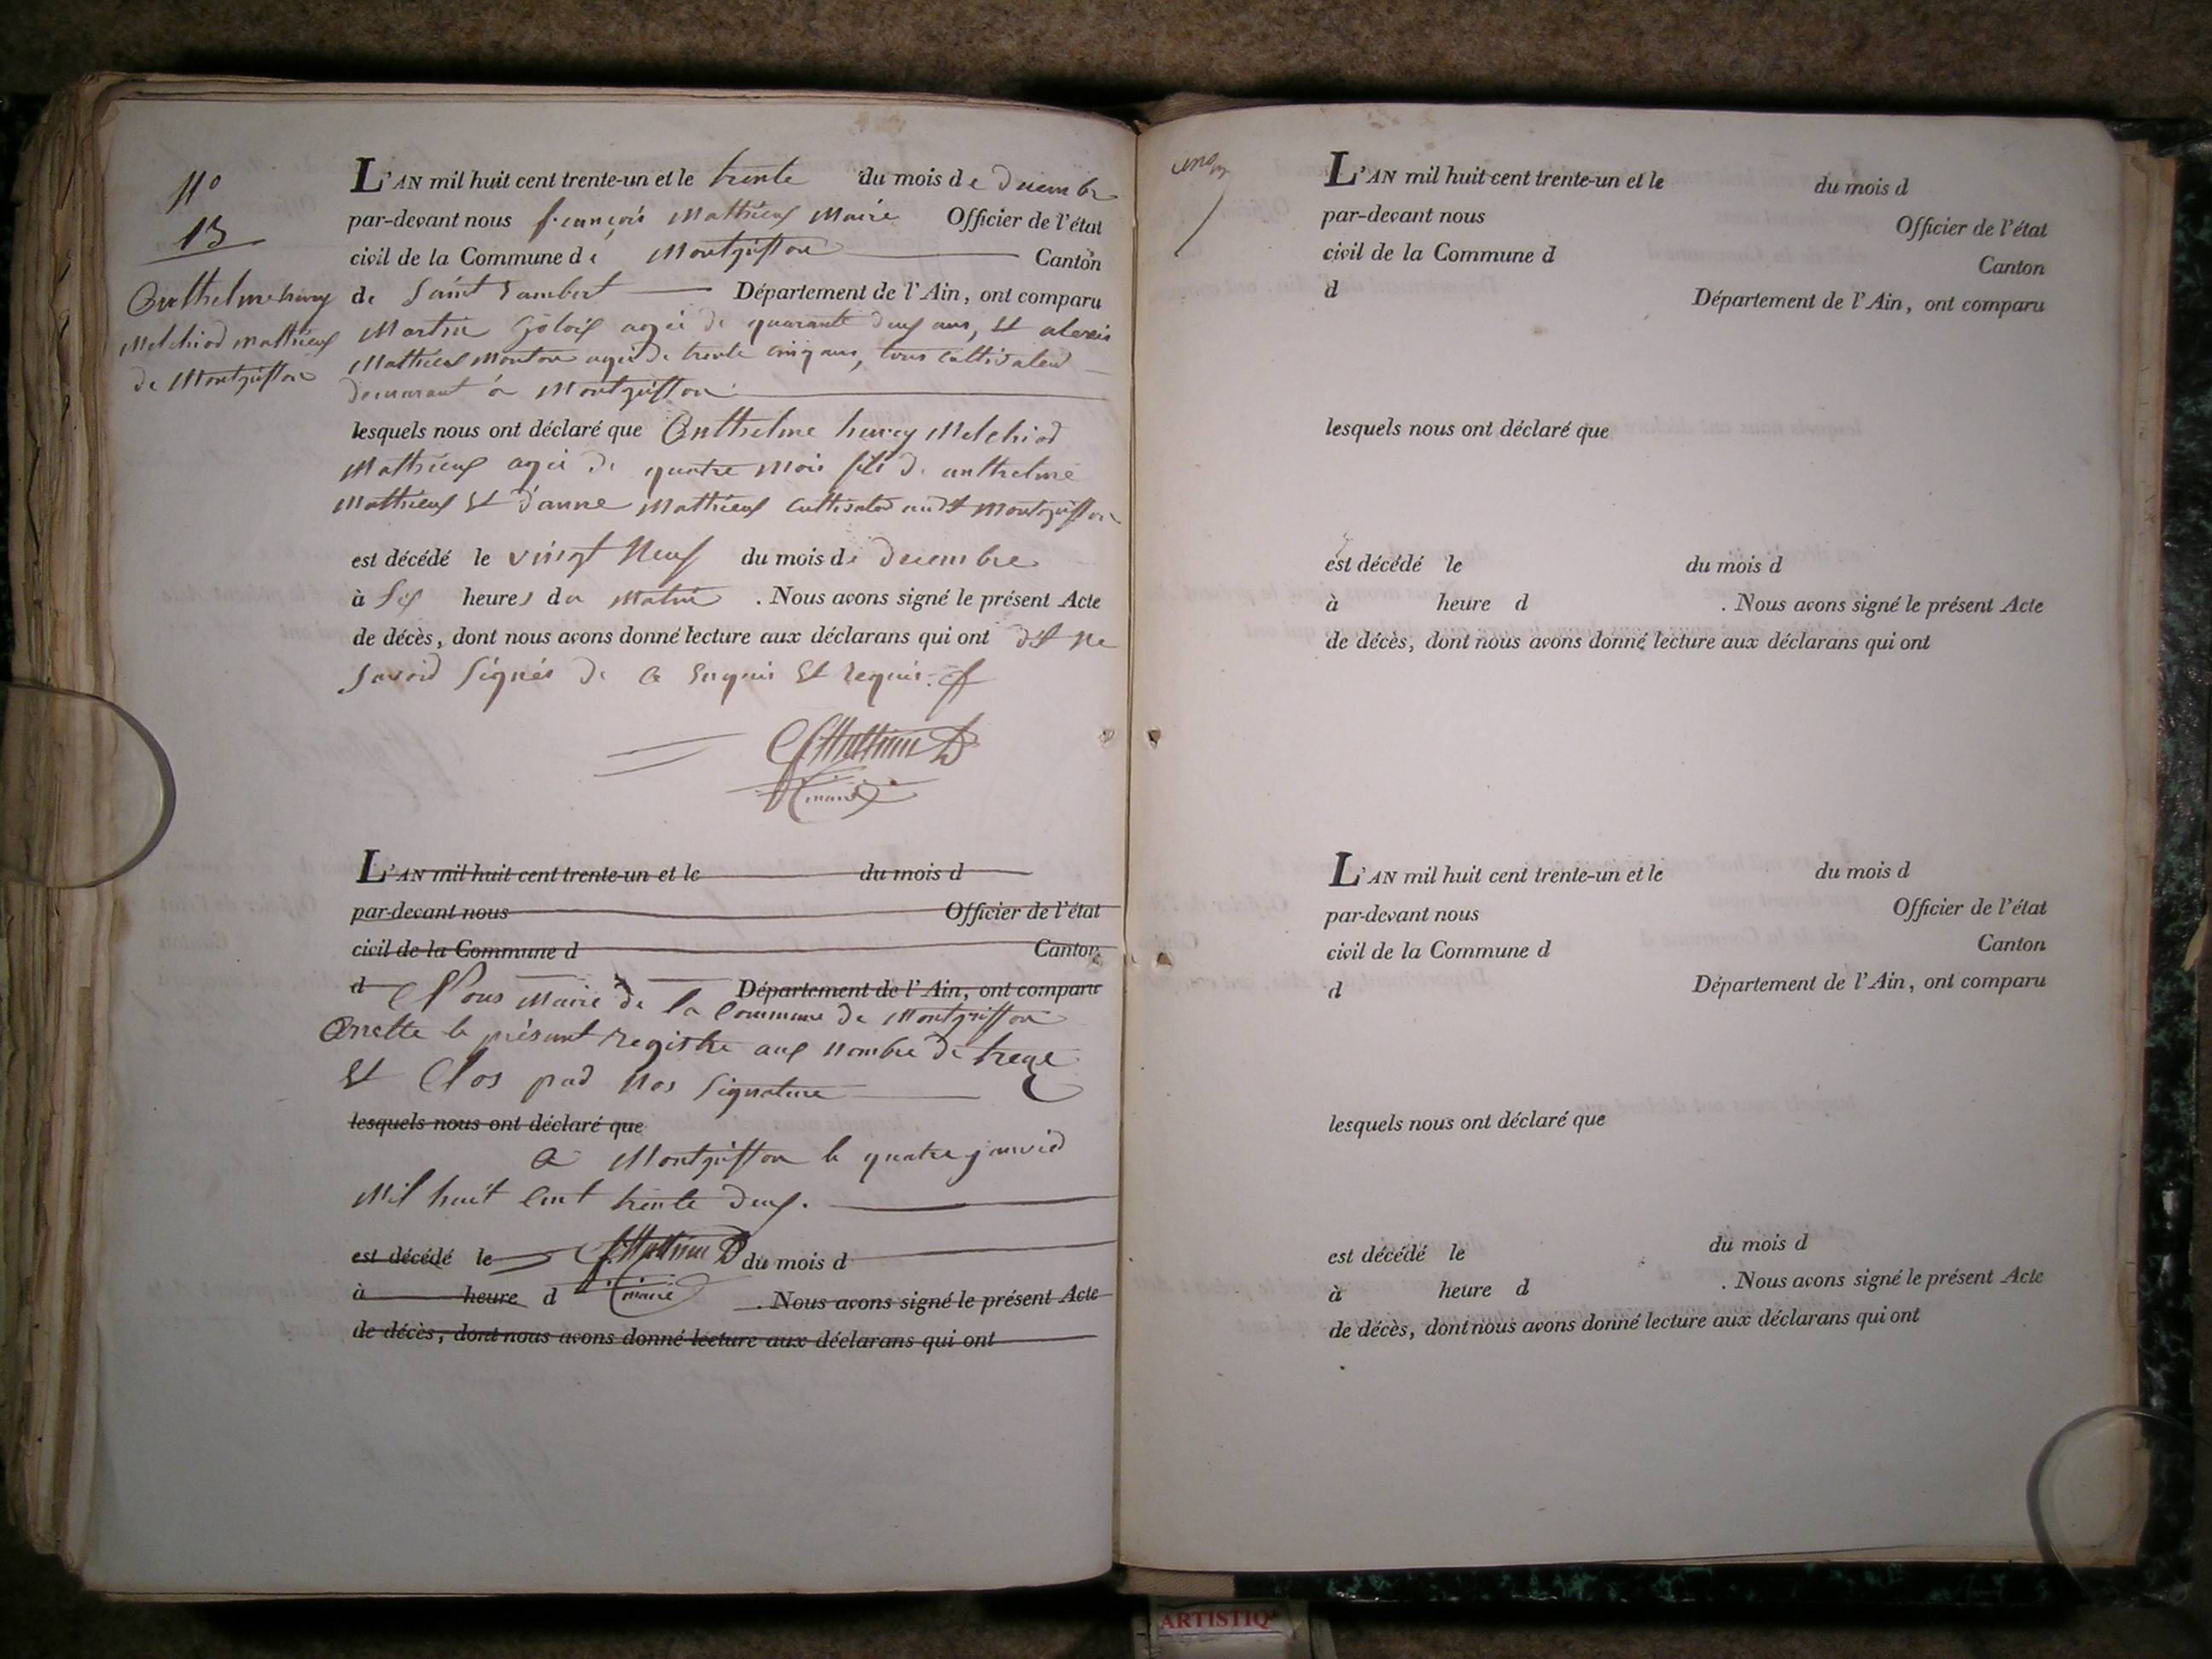 N°
13
Anthelme hurey
Melchiod mathieux
de Montgriffon
L'AN mil huit cent trente-un et le trente du mois de Decembre
par-devant nous françois Mathieux Maire Officier de l'état
civil de la Commune de Montgriffon Canton
de Saint Rambert Département de l'Ain, ont comparu
Martin agée de quarante deux ans, et alexis
Mathieux Monton agée de trente cinq ans, tous cultivateur
demeurant à Montgriffon
lesquels nous ont déclaré que Anthelme hurey Melchiod
Mathieux agée de quatre Mois fils de anthelme
Mathieux et d'anne Mathieux Cultivateur Montgriffon
est décédé le vingt Neuf du mois de decembre
à Six heures du Matin . Nous avons signé le présent Acte
de décès, dont nous avons donné lecture aux déclarans qui ont dit ne
Savoir Signés de Ce Enquis et requis.
f Mathieu
maire
L'AN mil huit cent trente-un et le du mois d
par-devant nous Officier de l'état
civil de la Commune d Canton
d Département de l'Ain, ont comparu
Nous Maire de la Commune de Montgriffon
Arrette le présent registre aux nombre de treze
Et Clos pad Nos Signature
lesquels nous ont déclaré que
A Montgriffon le quatre janvied
Mil huit Cent trente deux.
est décédé le f Mathieu du mois d
à heure d maire . Nous avons signé le présent Acte
de décès, dont nous avons donné lecture aux déclarans qui ont
L'AN mil huit cent trente-un et le du mois d
par-devant nous Officier de l'état
civil de la Commune d Canton
d Département de l'Ain, ont comparu
lesquels nous ont déclaré que
est décédé le du mois d
à heure d . Nous avons signé le présent Acte
de décès, dont nous avons donné lecture aux déclarans qui ont
L'AN mil huit cent trente-un et le du mois d
par-devant nous Officier de l'état
civil de la Commune d Canton
d Département de l'Ain, ont comparu
lesquels nous ont déclaré que
est décédé le du mois d
à heure d . Nous avons signé le présent Acte
de décès, dont nous avons donné lecture aux déclarans qui ont
ARTISTIQ